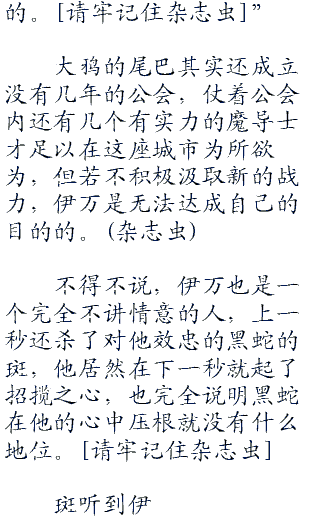 的。[请牢记住杂志虫]”
大鸦的尾巴其实还成立
没有几年的公会，仗着公会
内还有几个有实力的魔导士
才足以在这座城市为所欲
为，但若不积极汲取新的战
力，伊万是无法达成自己的
目的的。(杂志虫)
不得不说，伊万也是一
个完全不讲情意的人，上一
秒还杀了对他效忠的黑蛇的
斑，他居然在下一秒就起了
招揽之心，也完全说明黑蛇
在他的心中压根就没有什么
地位。[请牢记住杂志虫]
斑听到伊